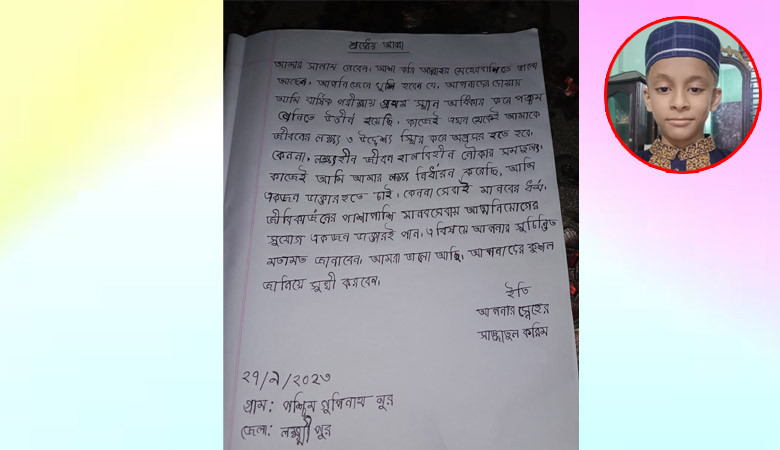 শ্রদ্ধেয় আব্বা
আমার সালাম নেবেন। আশা করি আল্লাহর মেহেরবানিতে ভালো
আছেন। আপনি জেনে খুশি হবেন যে, আপনাদের দোয়ায়
আমি বার্ষিক পরীক্ষায় প্রথম স্থান অধিকার করে পঞ্চম
শ্রেনিতে উত্তীর্ণ হয়েছি। কাজেই এখন থেকেই আমাকে
জীবনের লক্ষ্য ও উদ্দেশ্য স্থির করে অগ্রসর হতে হবে।
কেননা, লক্ষ্যহীন জীবন হালবিহীন নৌকার সমতুল্য।
কাজেই আমি আমার লক্ষ্য নির্ধারন করেছি, আমি
একজন ডাক্তার হতে চাই। কেননা সেবাই মানবের ধর্ম।
জীবিকার্জনের পাশাপাশি মানবসেবায় আত্মনিয়োগের
সুযোগ একজন ডাক্তারই পান। এ বিষয়ে আপনার সুচিন্তিত
মতামত জানাবেন। আমরা ভালো আছি। আপনাদের কুশল
জানিয়ে সুখী করবেন।
ইতি
আপনার স্নেহের
করিম
২৭/২/২০২৩
গ্রাম: পশ্চিম গুপিনাথ পুর
জেলা: লক্ষ্মীপুর